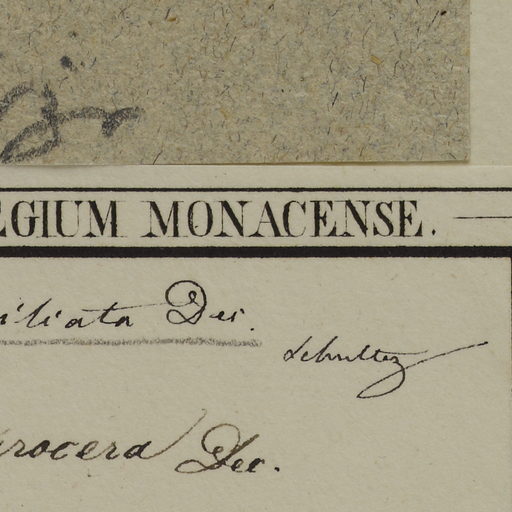 EGIUM MONACENSE.
iliata Dec.
Schultez
rocera Dec.